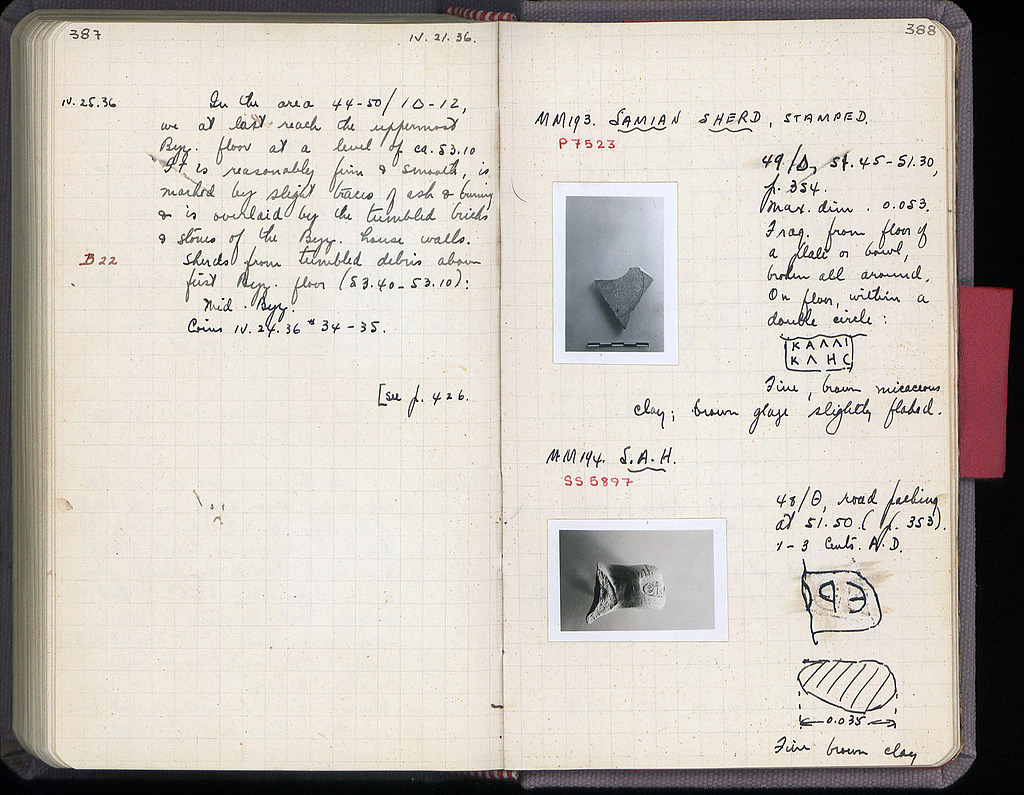 387
IV. 21. 36.
IV. 25.36
In the area 44-50/ΙΔ-ΙΖ,
we at last reach the uppermost
Byz. floor at a level of ca. 53.10
It is reasonably firm & smooth, is
marked by slight traces of ash & burning
& is overlaid by the tumbled bricks
& stones of the Byz. house walls.
B 22
Sherds from tumbled debris above
first Byz. floor (53.40-53.10):
Mid. Byz.
Coins IV. 24.36 # 34-35.
[see p. 426.
388
MM193. SAMIAN SHERD, STAMPED.
P 7523
49/Δ, 51.45-51.30,
p. 354.
Max. dim. 0.053.
Frag. from floor of
a plate or bowl,
broken all around.
On floor, within a
double circle:
ΚΑΛΛΙ
ΚΛΗC
Fine, brown micaceous
clay; brown glaze slightly flaked.
MM194. S.A.H.
SS 5897
48/Θ, road packing
at 51.50. (p. 353).
1-3 Cents. A.D.
0.035
Fine brown clay